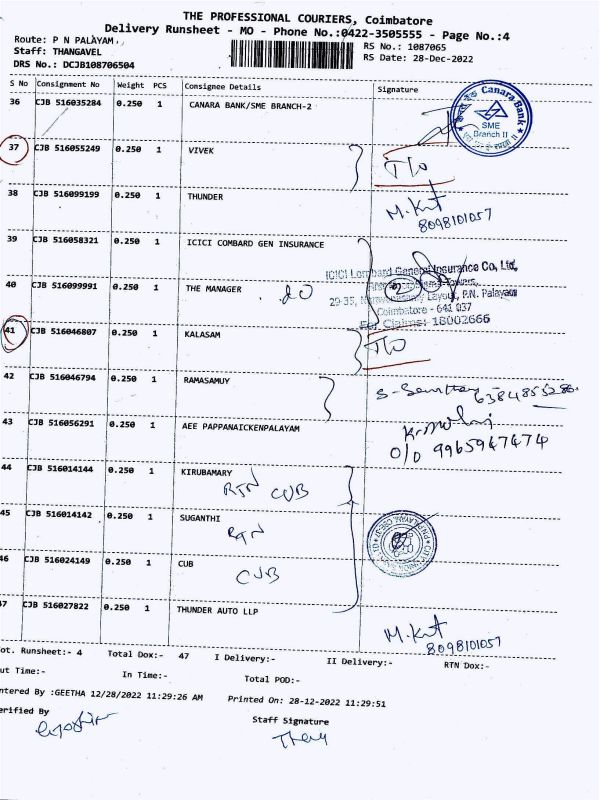 THE PROFESSIONAL COURIERS, Coimbatore
Delivery Runsheet - MO - Phone No.:0422-3505555 - Page No.:4
Route: P N PALAYAM
Staff: THANGAVEL
RS No.: 1087065
DRS No.: DCJB108706504
RS Date: 28-Dec-2022
S No Consignment No Weight PCS Consignee Details Signature
36 CJB 516035284 0.250 1 CANARA BANK/SME BRANCH-2
Canara Bank
SME
Branch II
37 CJB 516055249 0.250 1 VIVEK
T/O
38 CJB 516099199 0.250 1 THUNDER
8098101057
39 CJB 516058321 0.250 1 ICICI COMBARD GEN INSURANCE
ICICI Lombard General Insurance Co, Ltd,
40 CJB 516099991 0.250 1 THE MANAGER
29-35, Layout, P.N. Palayam
Coimbatore - 641 037
For Claims: 18002666
41 CJB 516046807 0.250 1 KALASAM
T/O
42 CJB 516046794 0.250 1 RAMASAMUY
43 CJB 516056291 0.250 1 AEE PAPPANAICKENPALAYAM
9965947474
44 CJB 516014144 0.250 1 KIRUBAMARY
RTN CUB
45 CJB 516014142 0.250 1 SUGANTHI
RTN
46 CJB 516024149 0.250 1 CUB
CUB
47 CJB 516027822 0.250 1 THUNDER AUTO LLP
8098101057
ot. Runsheet:- 4 Total Dox:- 47 I Delivery:- II Delivery:- RTN Dox:-
ut Time:- In Time:- Total POD:-
ntered By :GEETHA 12/28/2022 11:29:26 AM Printed On: 28-12-2022 11:29:51
erified By
Staff Signature